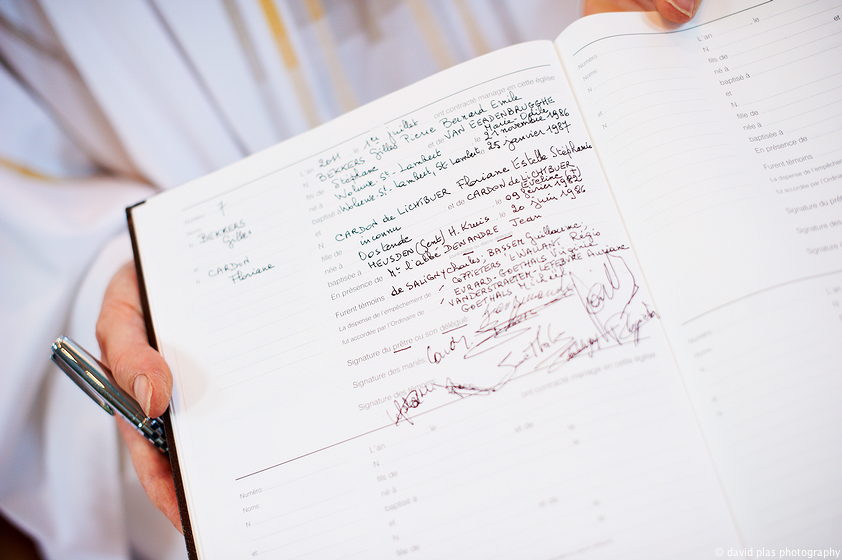 L'an 2011, le 1er juillet ont contracté mariage en cette église
N BEKKERS Gilles Pierre Bernard Emile
fils de Stéphane et de VAN EERDENBRUGGHE Marie Odile
né à Woluwe-St-Lambert, le 21 novembre 1986
baptisé à Woluwe-St-Lambert, St Lambert, le 25 janvier 1987
et
N CARDON de LICHTBUER Floriane Estelle Stéphanie
fille de inconnu et de CARDON de LICHTBUER Eveline
née à Oostende, le 09 février 1982
baptisée à HEUSDEN (Gent) H. Kruis, le 20 juin 1986
En présence de Mr l'abbé DEWANDRE Jean
Furent témoins de SALIGNY Charles, BASSEM Guillaume,
COPPIETERS 't WALLANT Régis
La dispense de l'empêchement de EVRARD-GOETHALS Virginie
fut accordée par l'Ordinaire de VANDERSTRAETEN-LEFEBVRE Auxiane
GOETHALS Michaël
Signature du prêtre ou son délégué
Signature des mariés
Signature des témoins
Numéro 7
N. BEKKERS
Gilles
N. CARDON
Floriane
Numéro
Noms
et
L'an, le ont contracté mariage en cette église
N
fils de et de
né à, le
baptisé à, le
et
N
Numéro
Noms
et
L'an, le
N
fils de
né à
baptisé à
et
N
fille de
née à
baptisée à
En présence de
Furent témoins
La dispense de l'empêchement de
fut accordée par l'Ordinaire de
Signature du prêtre
Signature des
Signature
Numéro
Noms
et
L'an
N
fils de
né à
© david plas photography